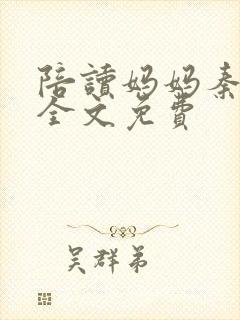 陪讀妈妈秦
全文免費
吴群弟